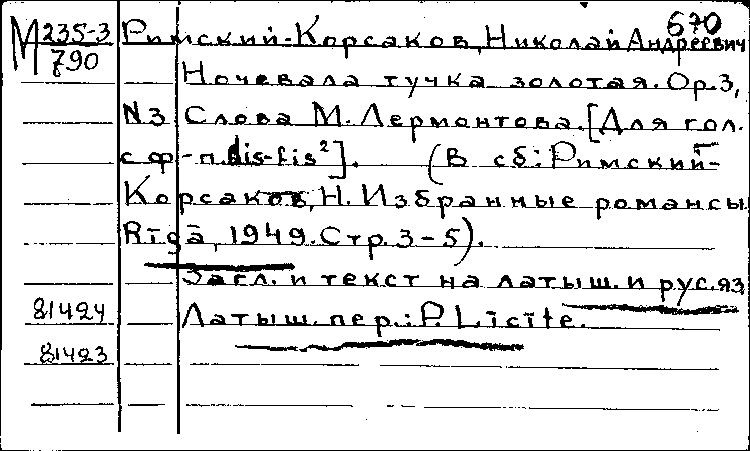 670
М 235-3 Римский-Корсаков, Николай Андреевич
790
Ночевала тучка золотая. Ор.3,
N3 Слова М. Лермонтова. [Для гол.
с ф-п. dis-fis²]. (В сб: Римский-
Корсаков, Н. Избранные романсы.
Rīgā, 1949. Стр. 3-5).
Загл. и текст на латыш. и рус. яз
81424 Латыш. пер.: P. Līcīte.
81423